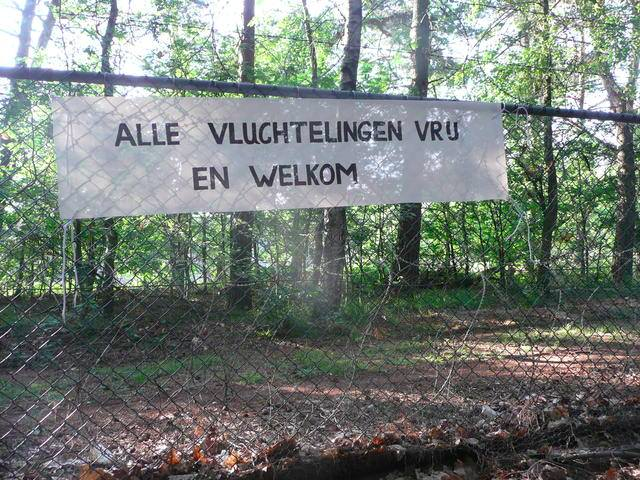 ALLE VLUCHTELINGEN VRIJ
EN WELKOM